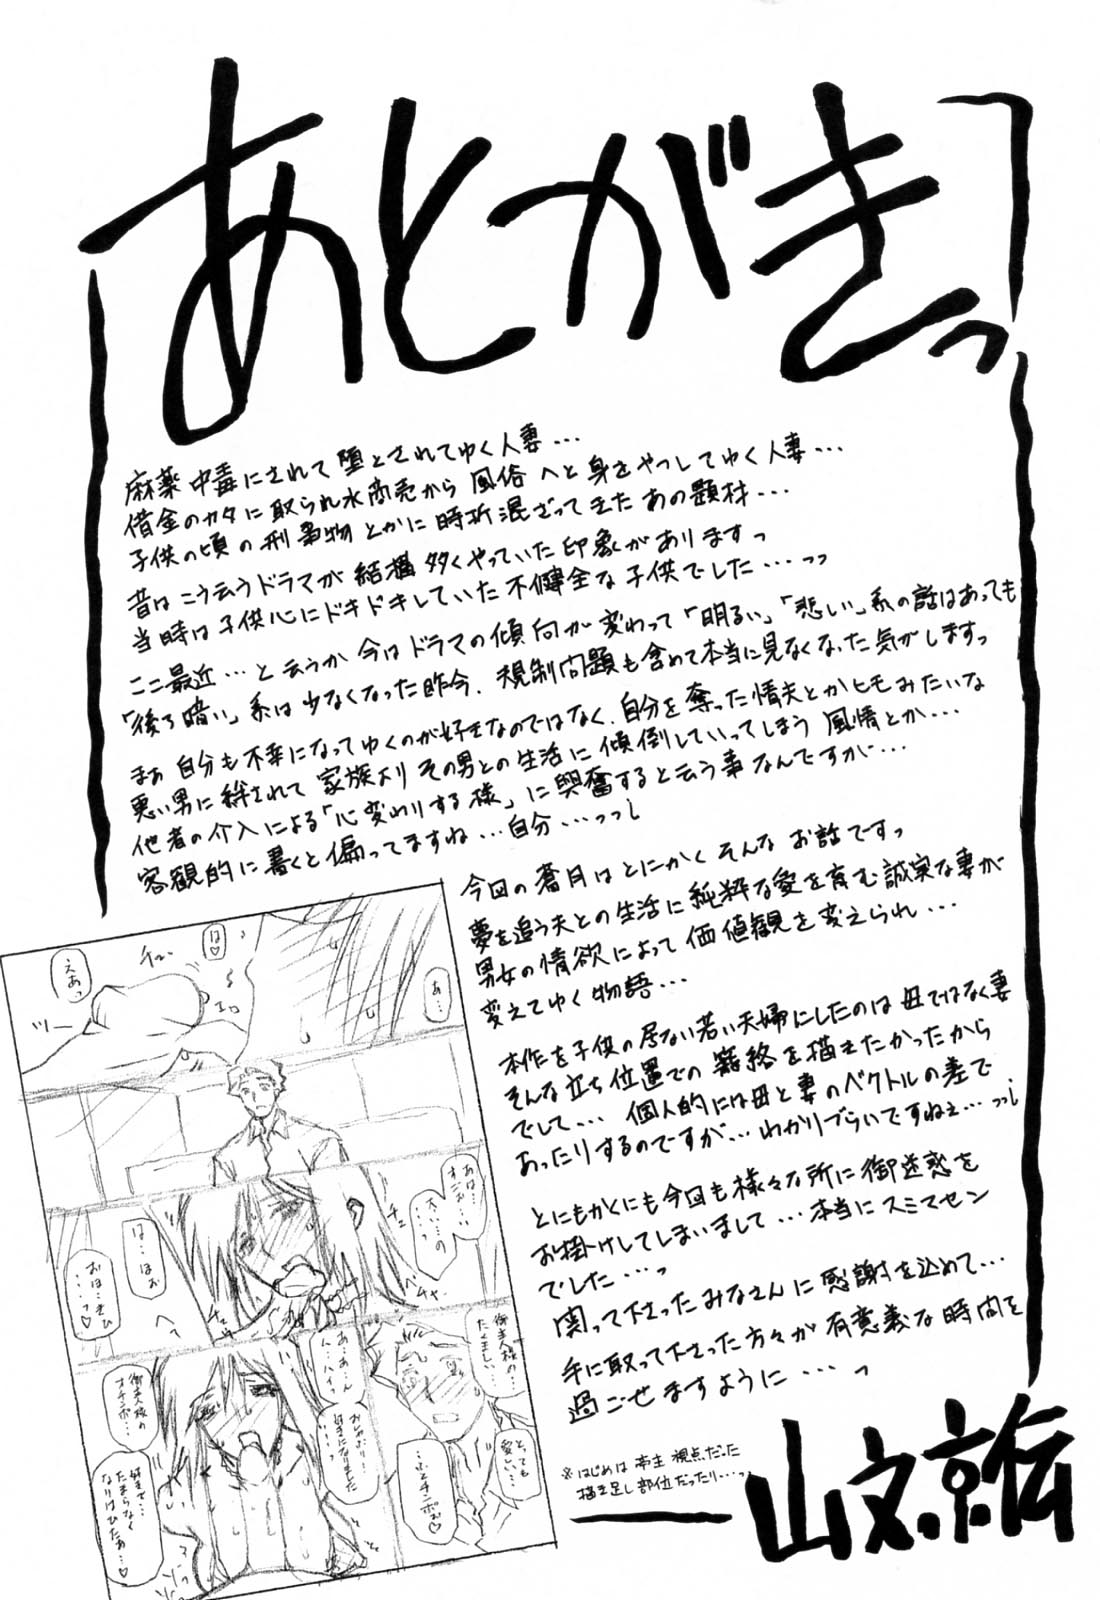 あとがきっ
麻薬中毒にされて堕とされてゆく人妻…
借金のカタに取られ水商売から風俗へと身をやつしてゆく人妻…
子供の頃の刑事物とかに時折混ざってきたあの題材…
昔はこう云うドラマが結構多くやっていた印象がありますっ
当時は子供心にドキドキしていた不健全な子供でした…っっ
ここ最近…と云うか今はドラマの傾向が変わって「明るい」「悲しい」系の話はあっても
「後ろ暗い」系は少なくなった昨今、規制問題も含めて本当に見なくなった気がしますっ
まぁ自分も不幸になってゆくのが好きなのではなく、自分を奪った情夫とかヒモみたいな
悪い男に絆されて家族よりその男との生活に傾倒していってしまう風情とか…
他者の介入による「心変わりする様」に興奮すると云う事なんですが…
客観的に書くと偏ってますね…自分…っっ
今回の蒼月はとにかくそんなお話ですっ
夢を追う夫との生活に純粋な愛を育む誠実な妻が
男女の情欲によって価値観を変えられ…
変えてゆく物語…
本作を子供の居ない若い夫婦にしたのは母ではなく妻
そんな立ち位置での籠絡を描きたかったから
でして… 個人的には母と妻のベクトルの差で
あったりするのですが…わかりづらいですねぇ…っっ
とにもかくにも今回も様々な所に御迷惑を
お掛けしてしまいまして…本当にスミマセン
でした…っ
関って下さったみなさんに感謝を込めて…
手に取って下さった方々が有意義な時間を
過ごせますように…っ
※はじめは亭主視点だった
描き足し部位だったり…っ
山文京伝
えあっ
チュ
は♡
ツー
エロ
あ…
あは…
すごお…
太い…の
チュ
は…はお
おは…きひ
…っ♡
御主人様の…
たくましい…
あ…あ…ん
おしゃぶり…
好きになりました
…
とっても
愛しい…
御主人様の
オチンポ…
好きで…
たまらなく
なりはひたぁ…♡